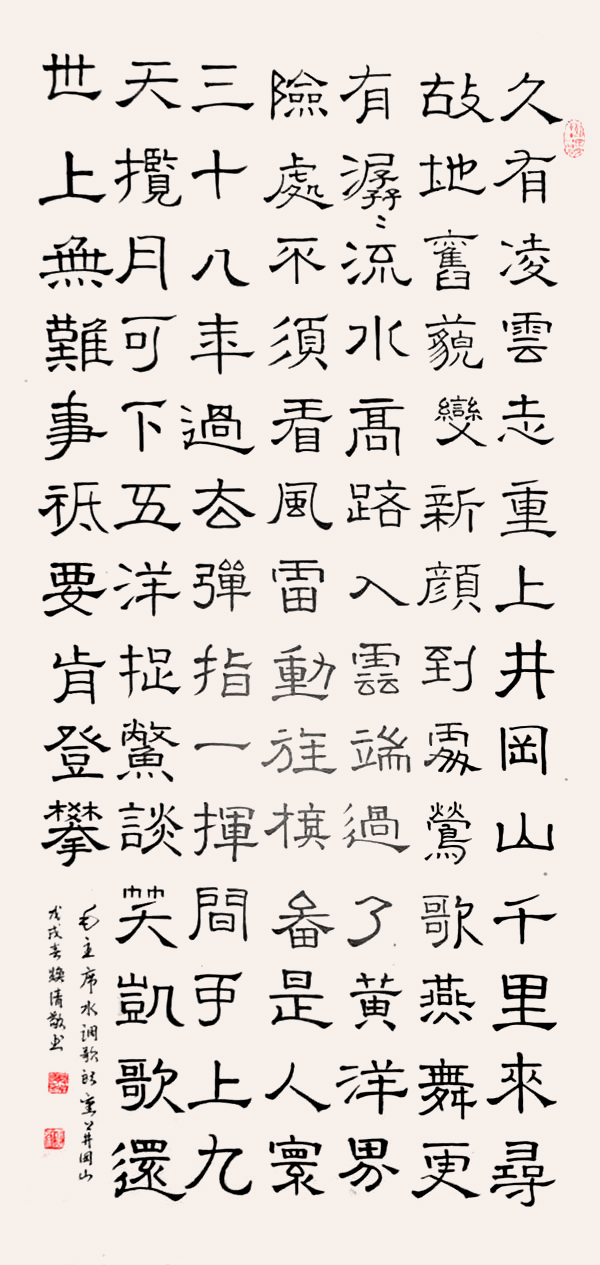 久有凌雲志重上井岡山千里來尋
故地舊藐變新顔到處鶯歌燕舞更
有潺〻流水高路入雲端過了黃洋界
險處不須看風雷動旌旗奋是人寰
三十八年過去彈指一揮間可上九
天攬月可下五洋捉鱉談笑凱歌還
世上無難事祇要肯登攀
毛主席水調歌頭重上井岡山
戊戌春焕清敬书